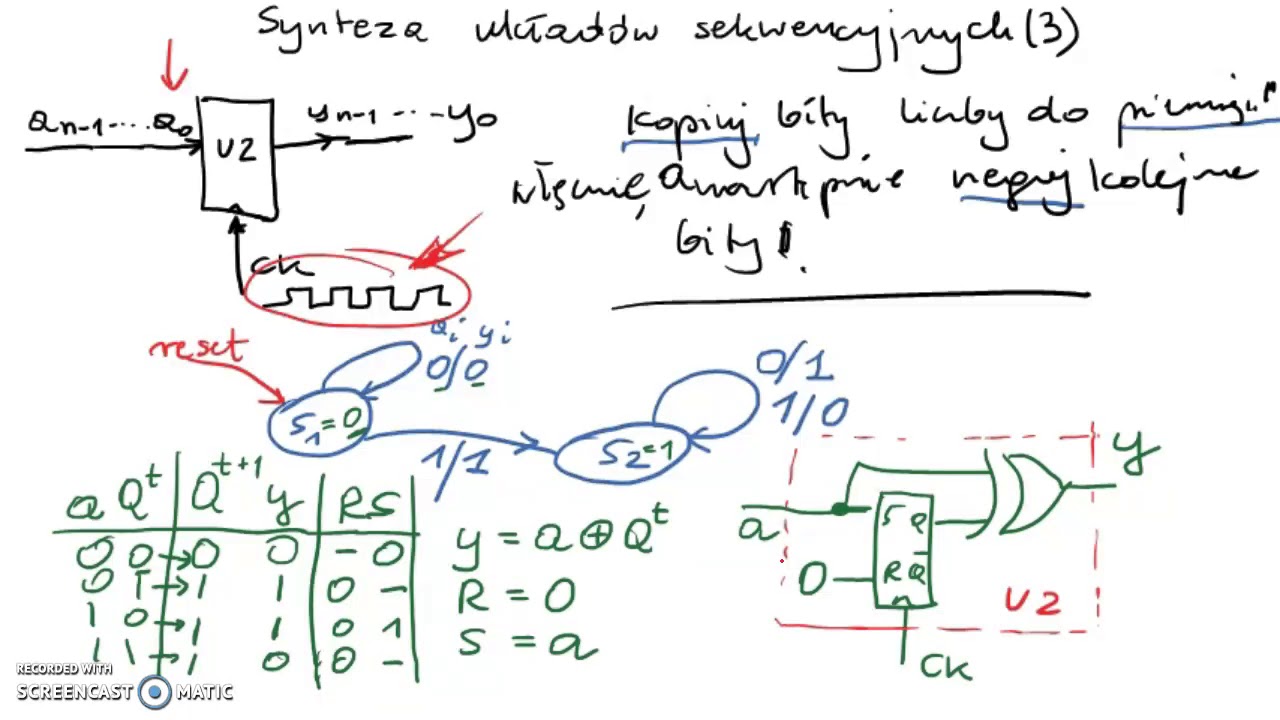 Synteza układów sekwencyjnych (3)
an-1 ... a0
U2
yn-1 ... y0
CK
kopiuj bity liczby do
włącznie, a następnie neguj kolejne
bity!
reset
ai yi
0/0
S1=0
1/1
S2=1
0/1
1/0
a Q^t | Q^t+1 y | R S
0 0 → 0 0 | - 0
0 1 → 1 1 | 0 -
1 0 → 1 1 | 0 1
1 1 → 1 0 | 0 -
y = a ⊕ Q^t
R = 0
S = a
a
0
S Q
R Q̅
CK
y
U2
RECORDED WITH
SCREENCAST MATIC